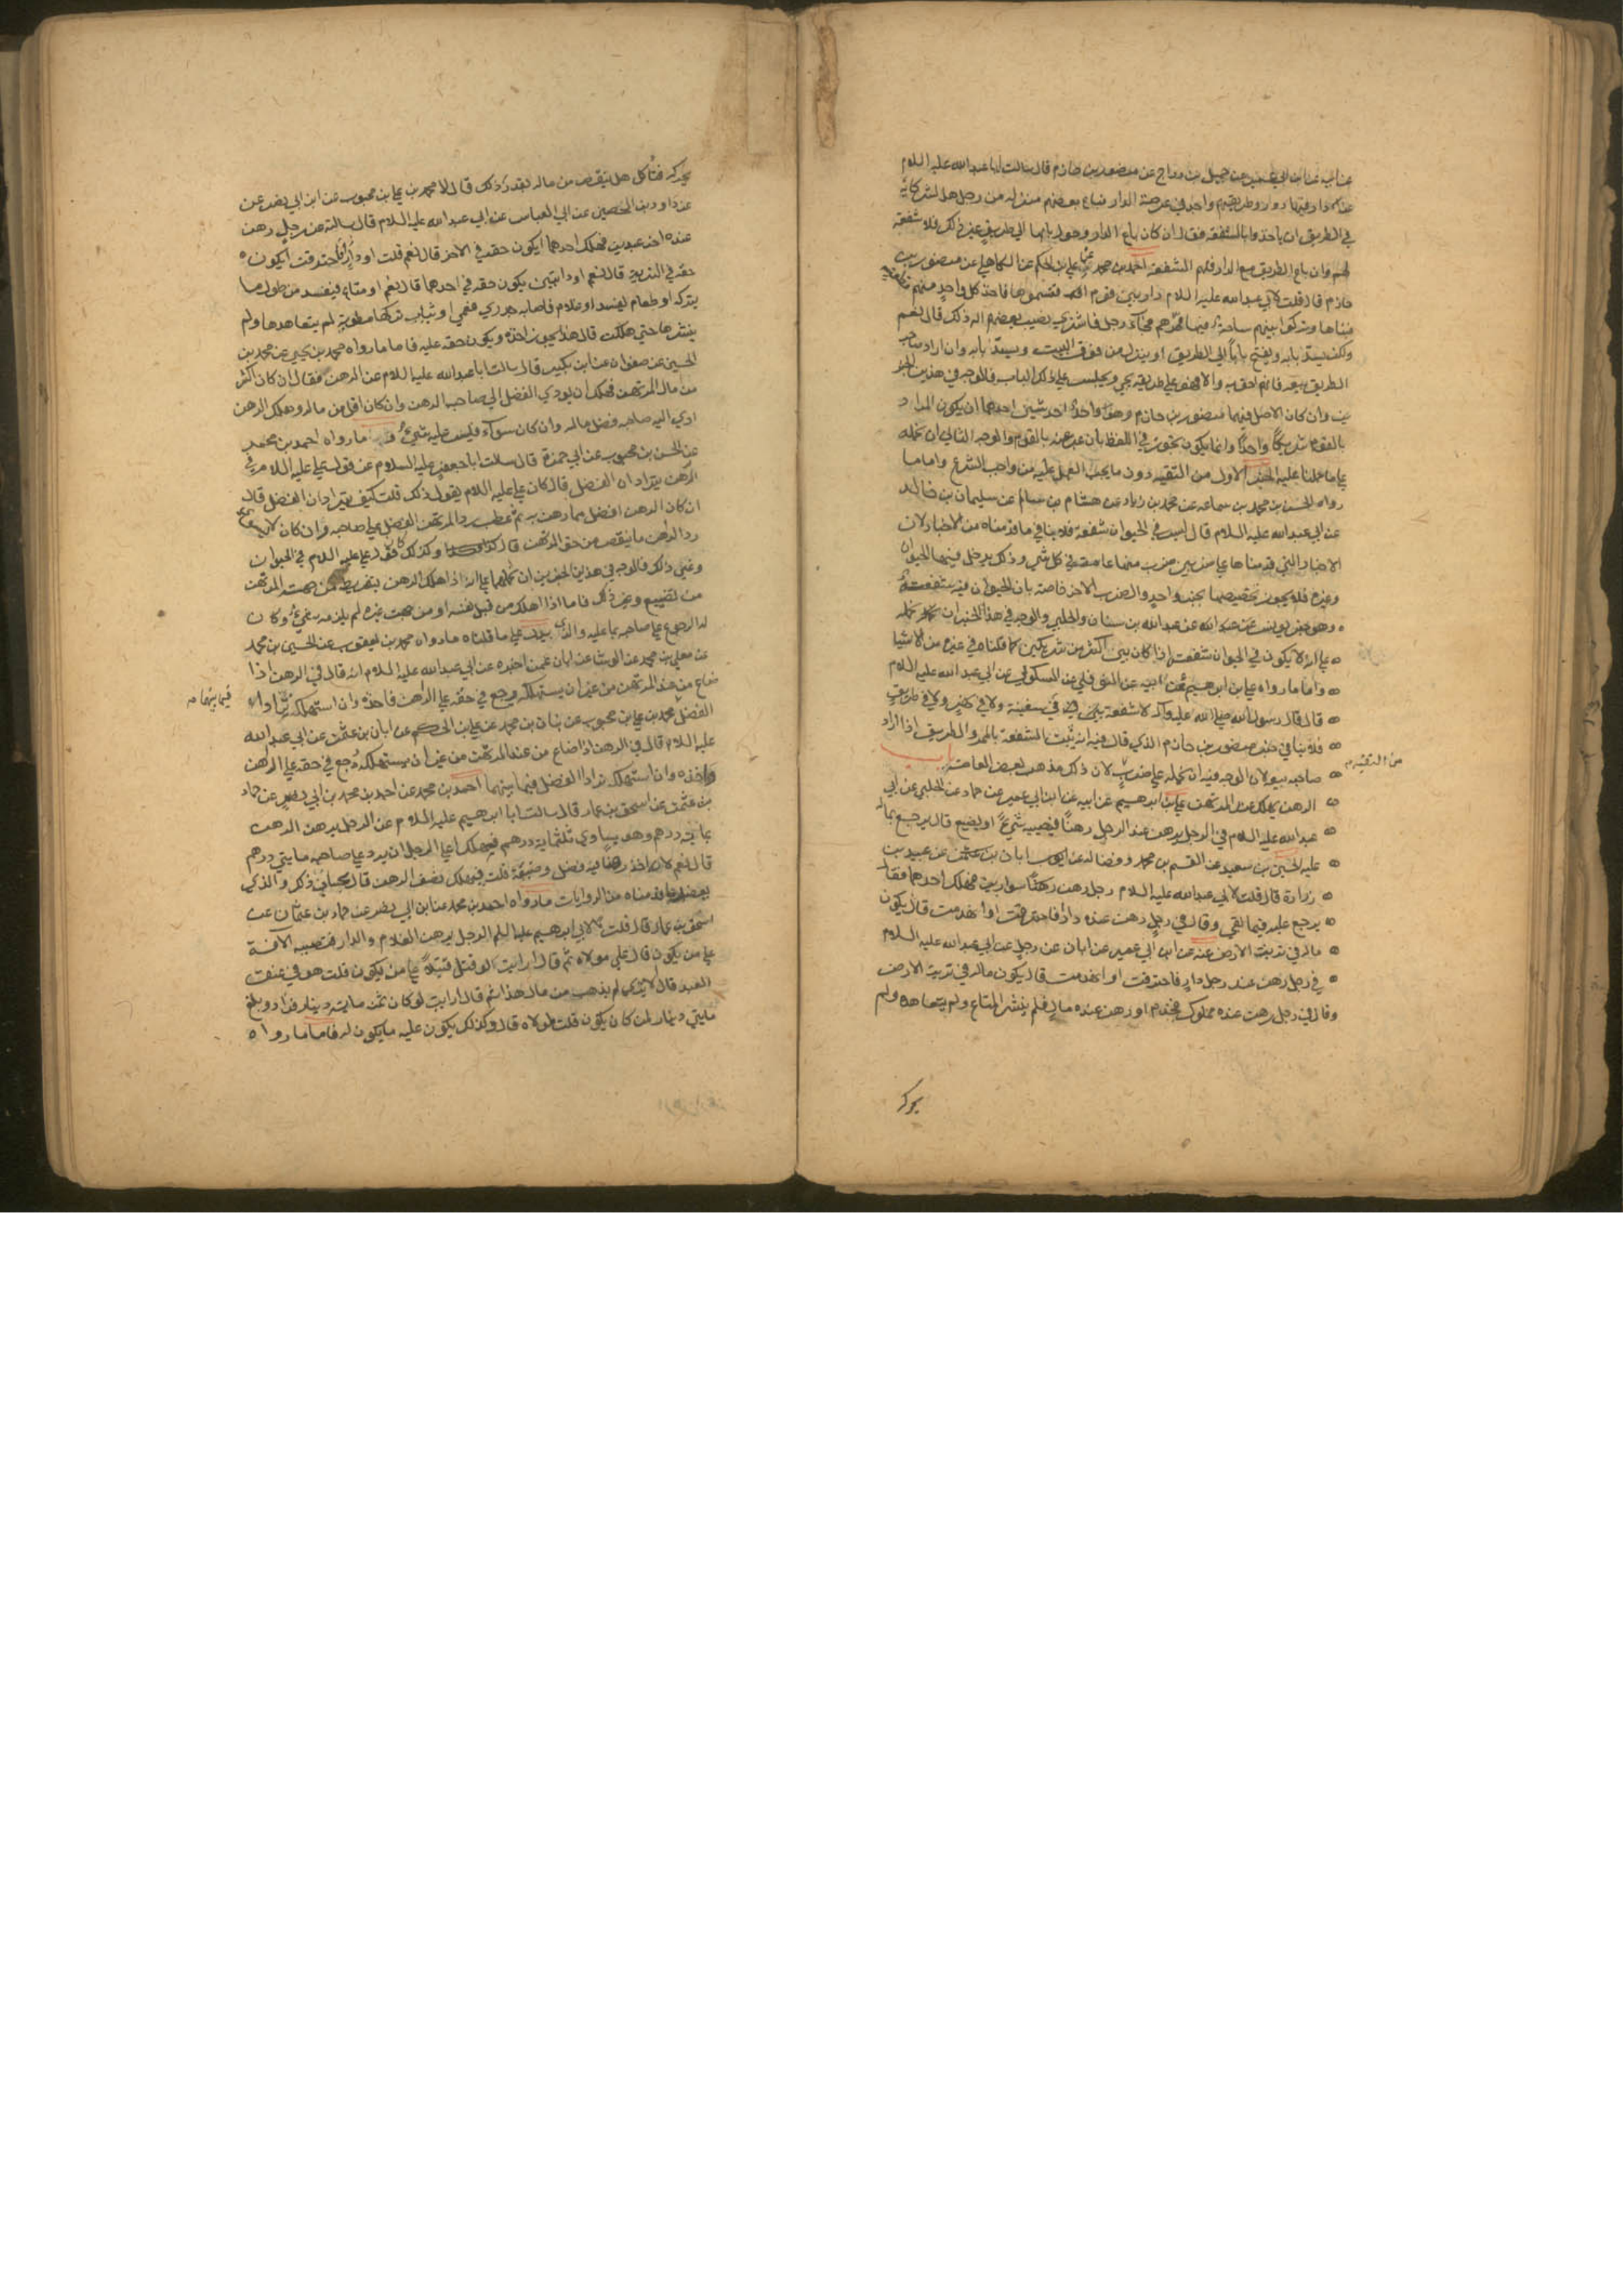 عن ابيه عن ابن ابي عمير عن جميل بن دراج عن منصور بن حازم قال سالت ابا عبدالله عليه السلام
عن دار فيها دور وطريقهم واحد في عرصة الدار فباع بعضهم منزله من رجل هل لشركائه
في الطريق ان ياخذوا بالشفعة فقال ان كان باع الدار وحول بابها الي طريق غير ذلك فلا شفعة
لهم وان باع الطريق مع الدار فلهم الشفعة احمد بن محمد عن علي بن الحكم عن الكاهلي عن منصور بن
حازم قال قلت لابي عبدالله عليه السلام دار بين قوم اقتسموها فاخذ كل واحد منهم قطعة
فبناها وتركوا بينهم ساحة فيها ممرهم فجاء رجل فاشتري نصيب بعضهم اله ذلك قال نعم
ولكن يسد بابه ويفتح بابا الي الطريق او ينزل من فوق البيت ويسد بابه وان اراد صاحب
الطريق بيعه فانهم احق به والا فهو علي طريقه يجي ويجلس علي ذلك الباب فالوجه في هذين الخبر
ين وان كان الاصل فيهما منصور بن حازم وهو واحد احد شيئين احدهما ان يكون المراد
بالقوم شريكا واحدا وانما يكون تجوز في اللفظ بان عبر عنه بالقوم والوجه الثاني ان نحمله
علي ما حملنا عليه الخبر الاول من التقية دون ما يجب العمل عليه من واجب الشرع واما ما
رواه الحسن بن محمد بن سماعه عن محمد بن زياد عن هشام بن سالم عن سليمان بن خالد
عن ابي عبدالله عليه السلام قال ليس في الحيوان شفعة فلا ينافي ما قدمناه من الاخبار لان
الاخبار التي قدمناها علي ضربين ضرب منها عامة في كل شي وذلك يدخل فيها الحيوان
وغيره فلا يجوز تخصيصها بخبر واحد والضرب الاخر خاصة بان الحيوان فيه شفعة
وهو خبر يونس عن عبدالله بن سنان والحلبي والوجه في هذا الخبر ان نحمله
علي انه لا يكون في الحيوان شفعة اذا كان بين اكثر من شريكين كما قلناه في غيره من الاشيا
واما ما رواه علي بن ابرهيم عن ابيه عن النوفلي عن السكوني عن ابي عبدالله عليه السلام
قال قال رسول الله صلي الله عليه واله لا شفعة في سفينة ولا في نهر ولا في طريق
فلا ينافي خبر منصور بن حازم الذي قال فيه انه تثبت الشفعة بالممر والطريق اذا اراد
صاحبه بيعه لان الوجه فيه ان نحمله علي ضرب لان ذلك مذهب لبعض العامة باب
من التقية
الرهن يهلك عند المرتهن علي بن ابرهيم عن ابيه عن ابن ابي عمير عن حماد عن الحلبي عن ابي
عبدالله عليه السلام في الرجل يرهن عند الرجل رهنا فيصيبه شيء او يضيع قال يرجع بماله
عليه الحسين بن سعيد عن القسم بن محمد وفضاله عن ابان بن عثمن عن عبيد بن
زرارة قال قلت لابي عبدالله عليه السلام رجل رهن رهنا سوارين فهلك احدهما فقال
يرجع عليه فيما بقي وقال في رجل رهن عنده دارا فاحترقت او انهدمت قال يكون
ماله في تربة الارض عنه عن ابن ابي عمير عن ابان عن رجل عن ابي عبدالله عليه السلام
في رجل رهن عند رجل دار فاحترقت او انهدمت قال يكون ماله في تربة الارض
وقال في رجل رهن عنده مملوك فجذم او رهن عنده مال فلم ينشر المتاع ولم يتعاهده ولم
يحركه
يحركه فتأكل هل ينقص من ماله بقدر ذلك قال لا محمد بن علي بن محبوب عن ابن ابي نصر عن
عن داود بن الحصين عن ابي العباس عن ابي عبدالله عليه السلام قال سالته عن رجل رهن
عنده اخر عبدين فهلك احدهما ايكون حقه في الاخر قال نعم قلت او دارا فاحترقت ايكون
حقه في التربة قال نعم او دابتين يكون حقه في احدهما قال نعم او متاع فيفسد من طول ما
يتركه او طعام يفسد او غلام فاصابه جدري فعمي او ثياب تركها مطوية لم يتعاهدها ولم
ينشرها حتي هلكت قال هذا يجوز اخذه ويكون حقه عليه فاما ما رواه محمد بن يحيي عن محمد بن
الحسين عن صفوان عن ابن بكير قال سالت ابا عبدالله عليه السلام عن الرهن فقال ان كان اكثر
من مال المرتهن فهلك ان يودي الفضل الي صاحب الرهن وان كان اقل من ماله وهلك الرهن
ادي اليه صاحبه فضل ماله وان كان سواء فليس عليه شيء ما رواه احمد بن محمد
عن الحسن بن محبوب عن ابي حمزة قال سالت ابا جعفر عليه السلام عن قول علي عليه السلام في
الرهن يترادان الفضل قال كان علي عليه السلام يقول ذلك قلت كيف يترادان الفضل قال
ان كان الرهن افضل مما رهن به ثم عطب رد المرتهن الفضل علي صاحبه وان كان لا يسوي
رد الراهن ما ينقص من حق المرتهن قال وكذلك كان قول علي عليه السلام في الحيوان
وغير ذلك فالوجه في هذين الخبرين ان نحملهما علي انه اذا هلك الرهن بتفريط من جهت المرتهن
من تضييع وغير ذلك فاما اذا هلك من قبل نفسه او من جهت غيره لم يلزمه شيء وكان
له الرجوع علي صاحبه بما عليه والذي يدل علي ما قلناه ما رواه محمد بن يعقوب عن الحسين بن محمد
عن معلي بن محمد عن الوشا عن ابان عمن اخبره عن ابي عبدالله عليه السلام انه قال في الرهن اذا
ضاع من عند المرتهن من غير ان يستهلكه رجع في حقه علي الراهن فاخذه وان استهلكه ترادا
فيما بينهما
الفضل محمد بن علي بن محبوب عن بنان بن محمد عن علي بن الحكم عن ابان بن عثمن عن ابي عبدالله
عليه السلام قال في الرهن اذا ضاع من عند المرتهن من غير ان يستهلكه رجع في حقه علي الراهن
فاخذه وان استهلكه ترادا الفضل فيما بينهما احمد بن محمد عن احمد بن محمد بن ابي نصر عن حماد
بن عثمن عن اسحق بن عمار قال سالت ابا ابرهيم عليه السلام عن الرجل يرهن الرهن
بمائة درهم وهو يساوي ثلثماية درهم فيهلك اعلي الرجل ان يرد علي صاحبه مايتي درهم
قال نعم لانه اخذ رهنا فيه فضل وضيعه قلت فهلك نصف الرهن قال بحساب ذلك والذي
ما قدمناه من الروايات ما رواه احمد بن محمد عن ابن ابي نصر عن حماد بن عثمان عن
اسحق بن عمار قال قلت لابي ابرهيم عليه السلم الرجل يرهن الغلام والدار فتصيبه الآفة
علي من يكون قال علي مولاه ثم قال ارايت لو قتل قتيلا علي من يكون قلت هو في عنق
العبد قال الا تري لم يذهب من مال هذا ثم قال ارايت لو كان ثمنه ماية دينار فزاد وبلغ
مايتي دينار لمن كان يكون قلت لمولاه قال وكذلك يكون عليه ما يكون له فاما ما رواه